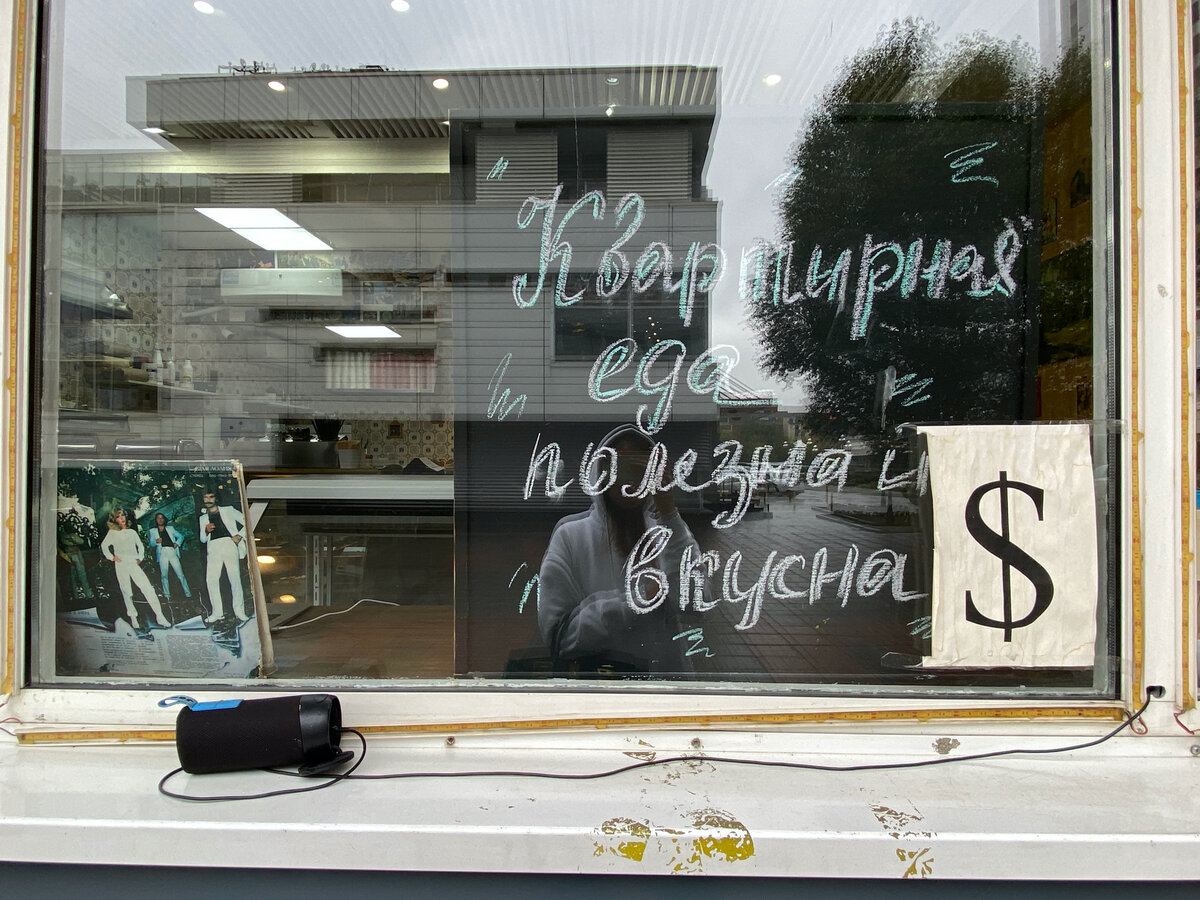 "Квартирная
еда
полезна и
вкусна
$